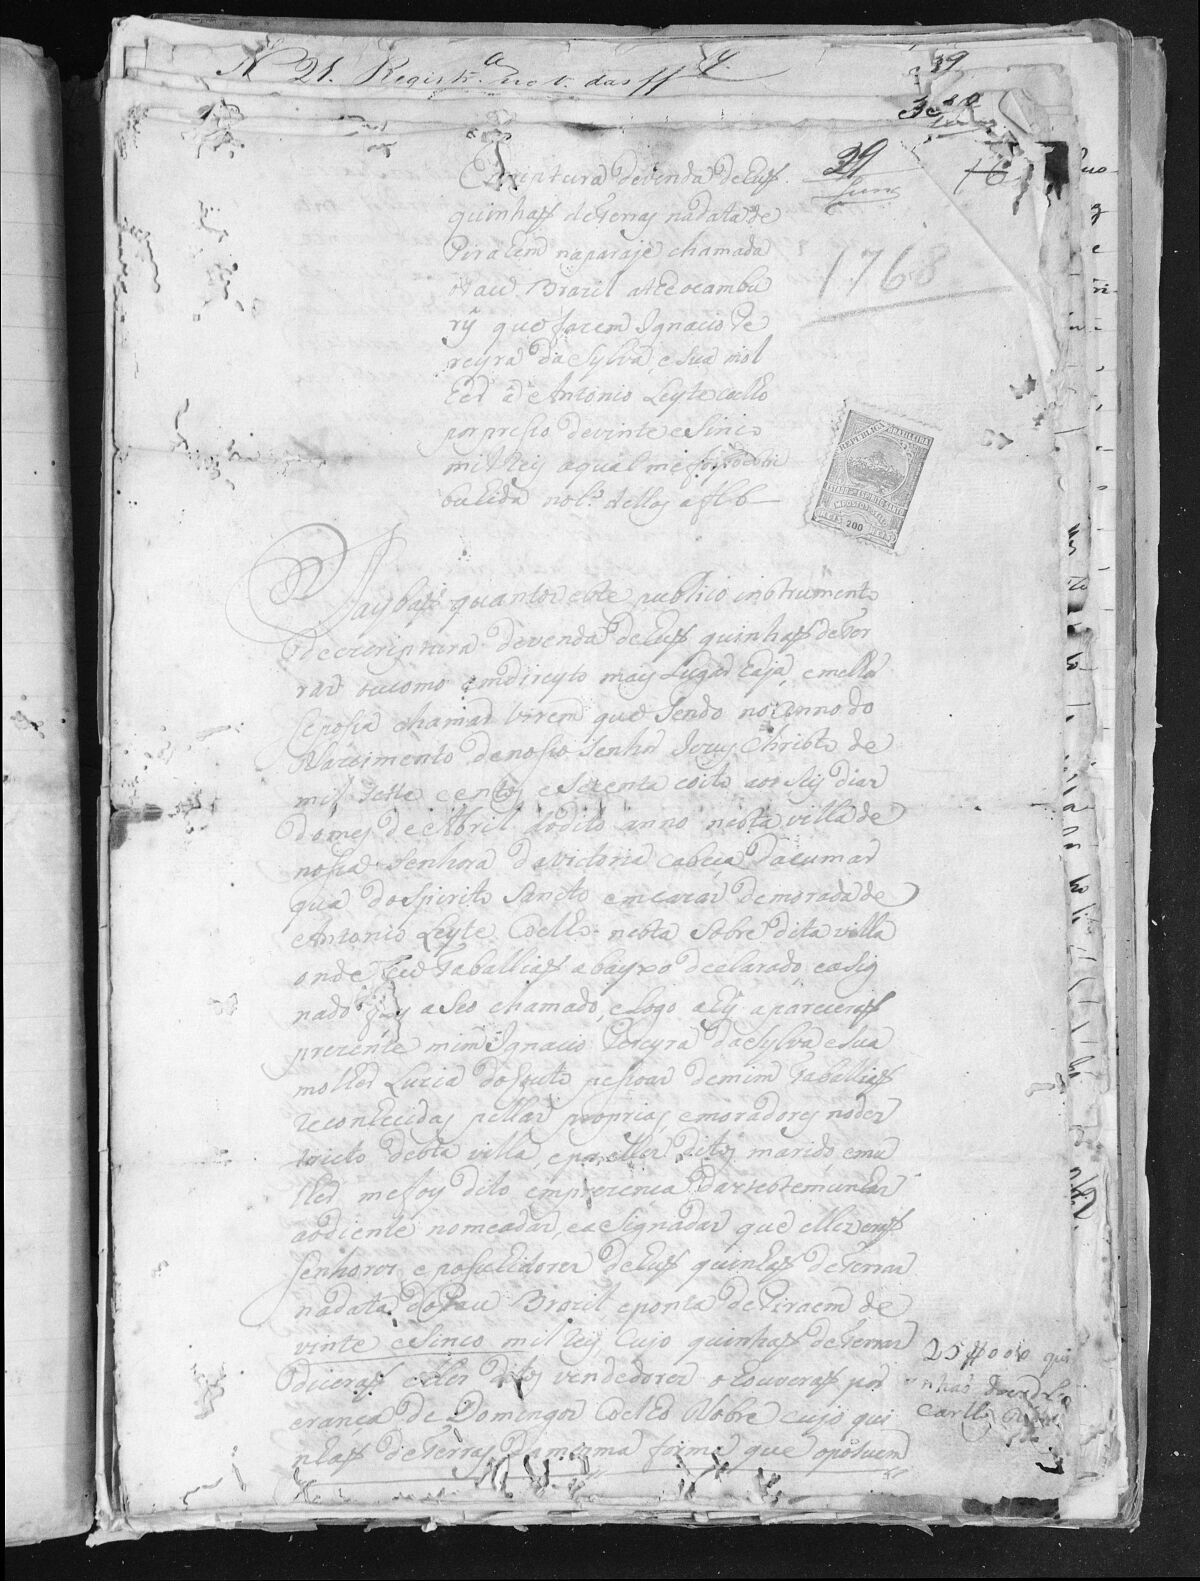 N 21. Registr.
39
39
16
Escriptura de venda de huñ
quinhaõ de terras na data de
Piralem na paraje chamada
o Pau Brazil athe o cambu
rÿ que fazem Ignacio Pe
reyra da Sylva, e sua mol
her a Antonio Leyte Coelho
por presio de vinte e sinco
mil rey a qual me foy
bulida no L.º dellas a fl 6
1768
REPUBLICA BRAZILEIRA
ESTADO DO ESPIRITO SANTO
IMPOSTO DO SELLO
REIS 200 REIS
Saybaõ quantos este publico instrumento
de escriptura de venda de huñ quinhaõ de ter
ras ou como em direyto mais lugar haja, e melhor
se posia chamar virem que sendo no Anno do
Nascimento de nosio Senhor Jezus Christo de
mil sette centos e secenta e oito aos seis dias
do mez de Abril do dito anno nesta villa de
nosia Senhora da victoria cabeça da cumar
qua do Spirito Sancto em cazas de morada de
Antonio Leyte Coelho nesta sobre dita villa
onde eu Taballiaõ abayxo declarado, e asig
nado fuy a seo chamado, e logo ahy apareceraõ
prezente mim Ignacio Pereyra da Sylva e sua
molher Luzia do Couto pesioas de mim Taballiaõ
reconhecidas pellas proprias, e moradores no des
tricto desta villa, e por elles ditos marido, e mu
lher me foy dito em prezença das testemunhas
aodiente nomeadas, e asignadas que elles eraõ
senhores, e posuhidores de huñ quinhaõ de terras
na data do Pau Brazil, e ponta de Piraem de
vinte e sinco mil rey, cujo quinhaõ de terras
diceraõ elles ditos vendedores o houveraõ por
erança de Domingos Coelho Nobre cujo qui
nhaõ de terras da mesma forma que o posuem
25$000 qui
nhaõ